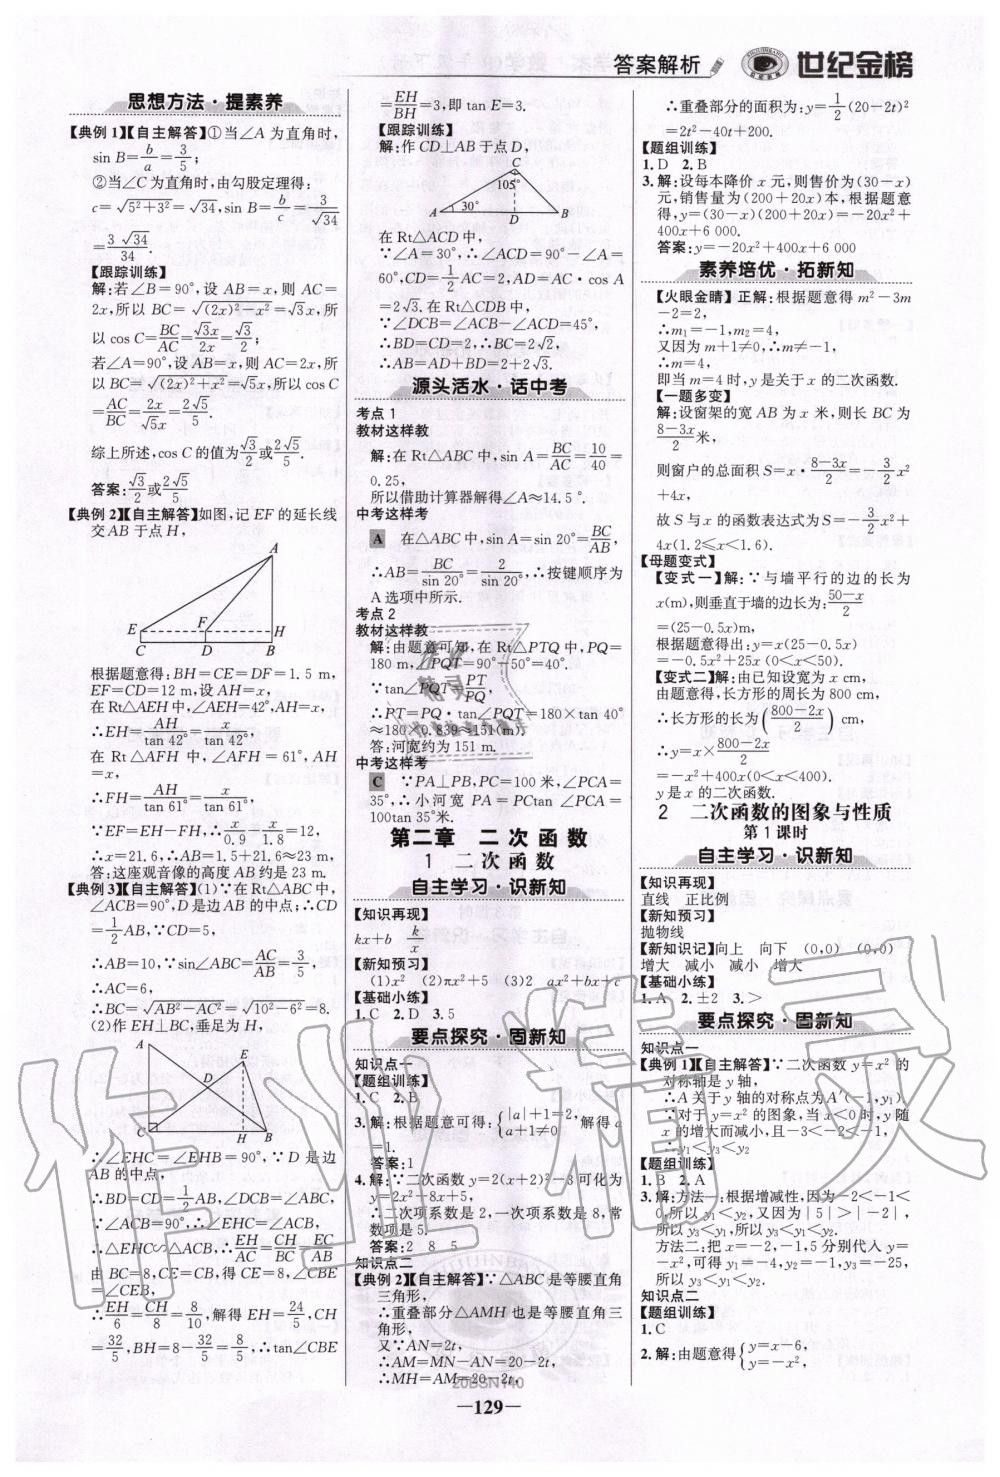 答案解析 世纪金榜
思想方法·提素养
【典例1】【自主解答】①当∠A为直角时,
sin B=b/a=3/5;
②当∠C为直角时,由勾股定理得:
c=√(5²+3²)=√34,sin B=b/c=3/√34
=3√34/34
【跟踪训练】
解:若∠B=90°,设 AB=x,则 AC=
2x,所以 BC=√((2x)²-x²)=√3x,所
以 cos C=BC/AC=√3x/2x=√3/2;
若∠A=90°,设 AB=x,则 AC=2x,所
以 BC=√((2x)²+x²)=√5x,所以cos C
=AC/BC=2x/√5x=2√5/5.
综上所述,cos C的值为√3/2或2√5/5.
答案:√3/2或2√5/5
【典例2】【自主解答】如图,记 EF 的延长线
交AB于点H,
A
E F H
C D B
根据题意得:BH=CE=DF=1.5 m,
EF=CD=12 m,设 AH=x,
在Rt△AEH中,∠AEH=42°,AH=x,
∴EH=AH/tan 42°=x/tan 42°,
在 Rt△AFH 中,∠AFH=61°,AH
=x,
∴FH=AH/tan 61°=x/tan 61°,
∵EF=EH-FH,∴x/0.9-x/1.8=12,
∴x=21.6,∴AB=1.5+21.6≈23 m.
答:这座观音像的高度AB约是23 m.
【典例3】【自主解答】(1)∵在Rt△ABC中,
∠ACB=90°,D是边AB的中点;∴CD
=1/2AB,∵CD=5,
∴AB=10,∵sin∠ABC=AC/AB=3/5,
∴AC=6,
∴BC=√(AB²-AC²)=√(10²-6²)=8.
(2)作EH⊥BC,垂足为H,
A E
D
C H B
∴∠EHC=∠EHB=90°,∵D是边
AB的中点,
∴BD=CD=1/2AB,∠DCB=∠ABC,
∵∠ACB=90°,∴∠EHC=∠ACB,
∴△EHC∽△ACB,∴EH/AC=CH/BC=EC/AB
由BC=8,CE=CB,得CE=8,∠CBE
=∠CEB,
∴EH/6=CH/8=8/10,解得EH=24/5,CH
=32/5,BH=8-32/5=8/5,∴tan∠CBE
=EH/BH=3,即 tan E=3.
【跟踪训练】
解:作CD⊥AB于点D,
C
105°
30°
A D B
在Rt△ACD中,
∵∠A=30°,∴∠ACD=90°-∠A=
60°,CD=1/2AC=2,AD=AC·cos A
=2√3.在Rt△CDB中,
∵∠DCB=∠ACB-∠ACD=45°,
∴BD=CD=2,∴BC=2√2,
∴AB=AD+BD=2+2√3.
源头活水·话中考
考点1
教材这样教
解:在Rt△ABC中,sin A=BC/AC=10/40=
0.25,
所以借助计算器解得∠A≈14.5°.
中考这样考
A 在△ABC中,sin A=sin 20°=BC/AB,
∴AB=BC/sin 20°=2/sin 20°,∴按键顺序为
A选项中所示.
考点2
教材这样教
解:由题意可知,在Rt△PTQ中,PQ=
180 m,∠PQT=90°-50°=40°.
∵tan∠PQT=PT/PQ,
∴PT=PQ·tan∠PQT=180×tan 40°
≈180×0.839≈151(m).
答:河宽约为151 m.
中考这样考
C ∵PA⊥PB,PC=100米,∠PCA=
35°,∴小河宽 PA=PCtan∠PCA=
100tan 35°米.
第二章 二次函数
1 二次函数
自主学习·识新知
【知识再现】
kx+b k/x
【新知预习】
(1)x² (2)πx²+5 (3)2 ax²+bx+c
【基础小练】
1.C 2.D 3.5
要点探究·固新知
知识点一
【题组训练】
1.C 2.B
3.解:根据题意可得:{|a|+1=2, a+1≠0,解得a
=1.
答案:1
4.解:∵二次函数y=2(x+2)²-3可化为
y=2x²-8x+5,
∴二次项系数是2,一次项系数是8,常
数项是5.
答案:2 8 5
知识点二
【典例2】【自主解答】∵△ABC是等腰直角
三角形,
∴重叠部分△AMH也是等腰直角三
角形,
又∵AN=2t,
∴AM=MN-AN=20-2t,
∴MH=AM=20-2t,
∴重叠部分的面积为:y=1/2(20-2t)²
=2t²-40t+200.
【题组训练】
1.D 2.B
3.解:设每本降价x元,则售价为(30-x)
元,销售量为(200+20x)本,根据题意
得,y=(30-x)(200+20x)=-20x²+
400x+6 000.
答案:y=-20x²+400x+6 000
素养培优·拓新知
【火眼金睛】正解:根据题意得m²-3m
-2=2,
∴m₁=-1,m₂=4,
又因为m+1≠0,∴m≠-1,
∴m=4,
即当m=4时,y是关于x的二次函数.
【一题多变】
解:设窗架的宽AB为x米,则长BC为
(8-3x)/2米,
则窗户的总面积S=x·(8-3x)/2=-3/2x²
+4x,
故S与x的函数表达式为S=-3/2x²+
4x(1.2≤x<1.6).
【母题变式】
【变式一】解:∵与墙平行的边的长为
x(m),则垂直于墙的边长为:(50-x)/2
=(25-0.5x)m,
根据题意得出:y=x(25-0.5x)
=-0.5x²+25x(0<x<50).
【变式二】解:由已知设宽为x cm,
由题意得,长方形的周长为800 cm,
∴长方形的长为((800-2x)/2) cm,
∴y=x×(800-2x)/2
=-x²+400x(0<x<400).
y是x的二次函数.
2 二次函数的图象与性质
第1课时
自主学习·识新知
【知识再现】
直线 正比例
【新知预习】
抛物线
【新知识记】向上 向下 (0,0) (0,0)
增大 减小 减小 增大
【基础小练】
1.A 2.±2 3.>
要点探究·固新知
知识点一
【典例1】【自主解答】∵二次函数y=x²的
对称轴是y轴,
∴A关于y轴的对称点为A′(-1,y₁).
∵对于y=x²的图象,当x<0时,y随
x的增大而减小,且-3<-2<-1,
∴y₁<y₃<y₂
【题组训练】
1.B 2.A
3.解:方法一:根据增减性,因为-2<-1<
0,所以y₁<y₂,又因为|5|>|-2|,
所以y₃<y₁,所以y₃<y₁<y₂.
方法二:把x=-2,-1,5分别代入y=
-x²,可得y₁=-4,y₂=-1,y₃=-25,
所以y₃<y₁<y₂.
知识点二
【题组训练】
1.C
2.解:由题意得{y=x-6, y=-x²,
20BSN140
—129—
作业精灵